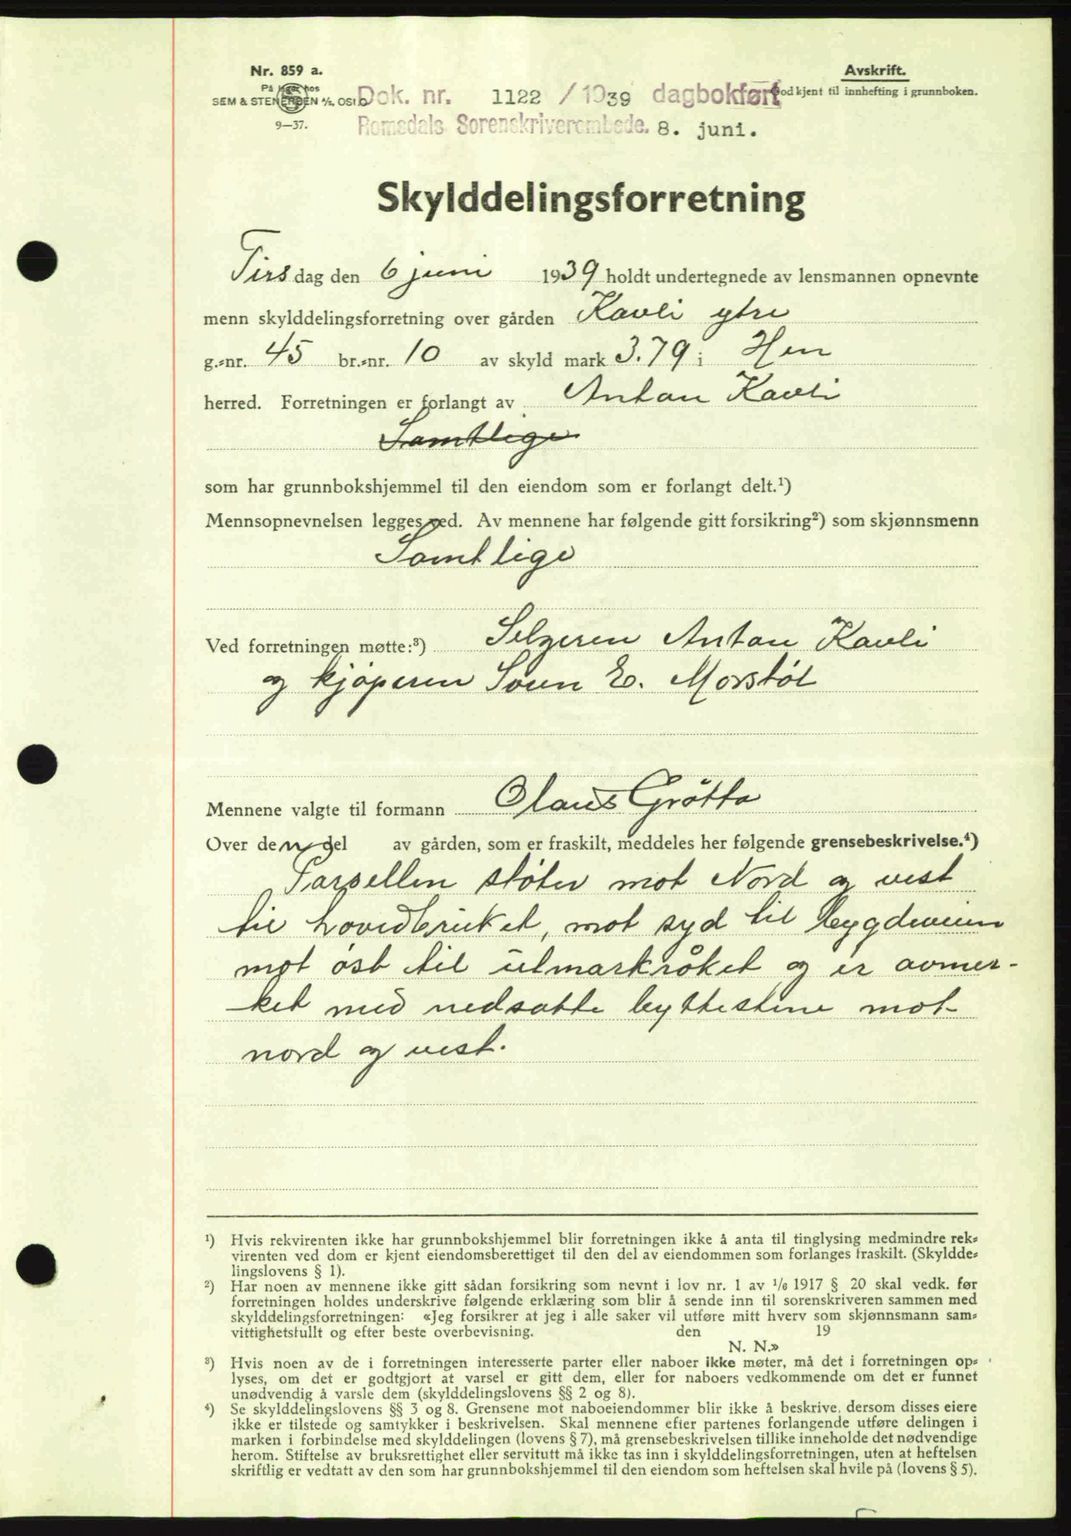 Nr. 859 a.
På lager hos
SEM & STENERSEN A/S, OSLO
9—37.
Avskrift.
Godkjent til innhefting i grunnboken.
Dok. nr. 1122 / 1939 dagbokført
Romsdals Sorenskriverembede. 8. juni.
Skylddelingsforretning
Tirsdag den 6 juni 1939 holdt undertegnede av lensmannen opnevnte
menn skylddelingsforretning over gården Kavli ytre
g.-nr. 45 br.-nr. 10 av skyld mark 3.79 i Hen
herred. Forretningen er forlangt av Anton Kavli
Samtlige
som har grunnbokshjemmel til den eiendom som er forlangt delt.¹)
Mennsopnevnelsen legges ved. Av mennene har følgende gitt forsikring²) som skjønnsmenn
Samtlige
Ved forretningen møtte:³) Selgeren Anton Kavli
og kjøperen Sven E. Morstøl
Mennene valgte til formann Olaus Grötta
Over den del av gården, som er fraskilt, meddeles her følgende grensebeskrivelse.⁴)
Parsellen støter mot Nord og vest
til hovedbruket, mot syd til bygdeveien
mot öst til utmarkråket og er avmer-
ket med nedsatte byttestene mot
nord og vest.
¹) Hvis rekvirenten ikke har grunnbokshjemmel blir forretningen ikke å anta til tinglysing medmindre rek-
virenten ved dom er kjent eiendomsberettiget til den del av eiendommen som forlanges fraskilt. (Skyldde-
lingslovens § 1).
²) Har noen av mennene ikke gitt sådan forsikring som nevnt i lov nr. 1 av 1/6 1917 § 20 skal vedk. før
forretningen holdes underskrive følgende erklæring som blir å sende inn til sorenskriveren sammen med
skylddelingsforretningen: «Jeg forsikrer at jeg i alle saker vil utføre mitt hverv som skjønnsmann sam-
vittighetsfullt og efter beste overbevisning. den 19
N. N.»
³) Hvis noen av de i forretningen interesserte parter eller naboer ikke møter, må det i forretningen op-
lyses, om det er godtgjort at varsel er gitt dem, eller for naboers vedkommende om det er funnet
unødvendig å varsle dem (skylddelingslovens §§ 2 og 8).
⁴) Se skylddelingslovens §§ 3 og 8. Grensene mot naboeiendommer blir ikke å beskrive, dersom disses eiere
ikke er tilstede og samtykker i beskrivelsen. Skal mennene efter partenes forlangende utføre delingen i
marken i forbindelse med skylddelingen (lovens § 7), må grensebeskrivelsen tillike inneholde det nødvendige
herom. Stiftelse av bruksrettighet eller servitutt må ikke tas inn i skylddelingsforretningen, uten at heftelsen
skriftlig er vedtatt av den som har grunnbokshjemmel til den eiendom som heftelsen skal hvile på (lovens § 5).